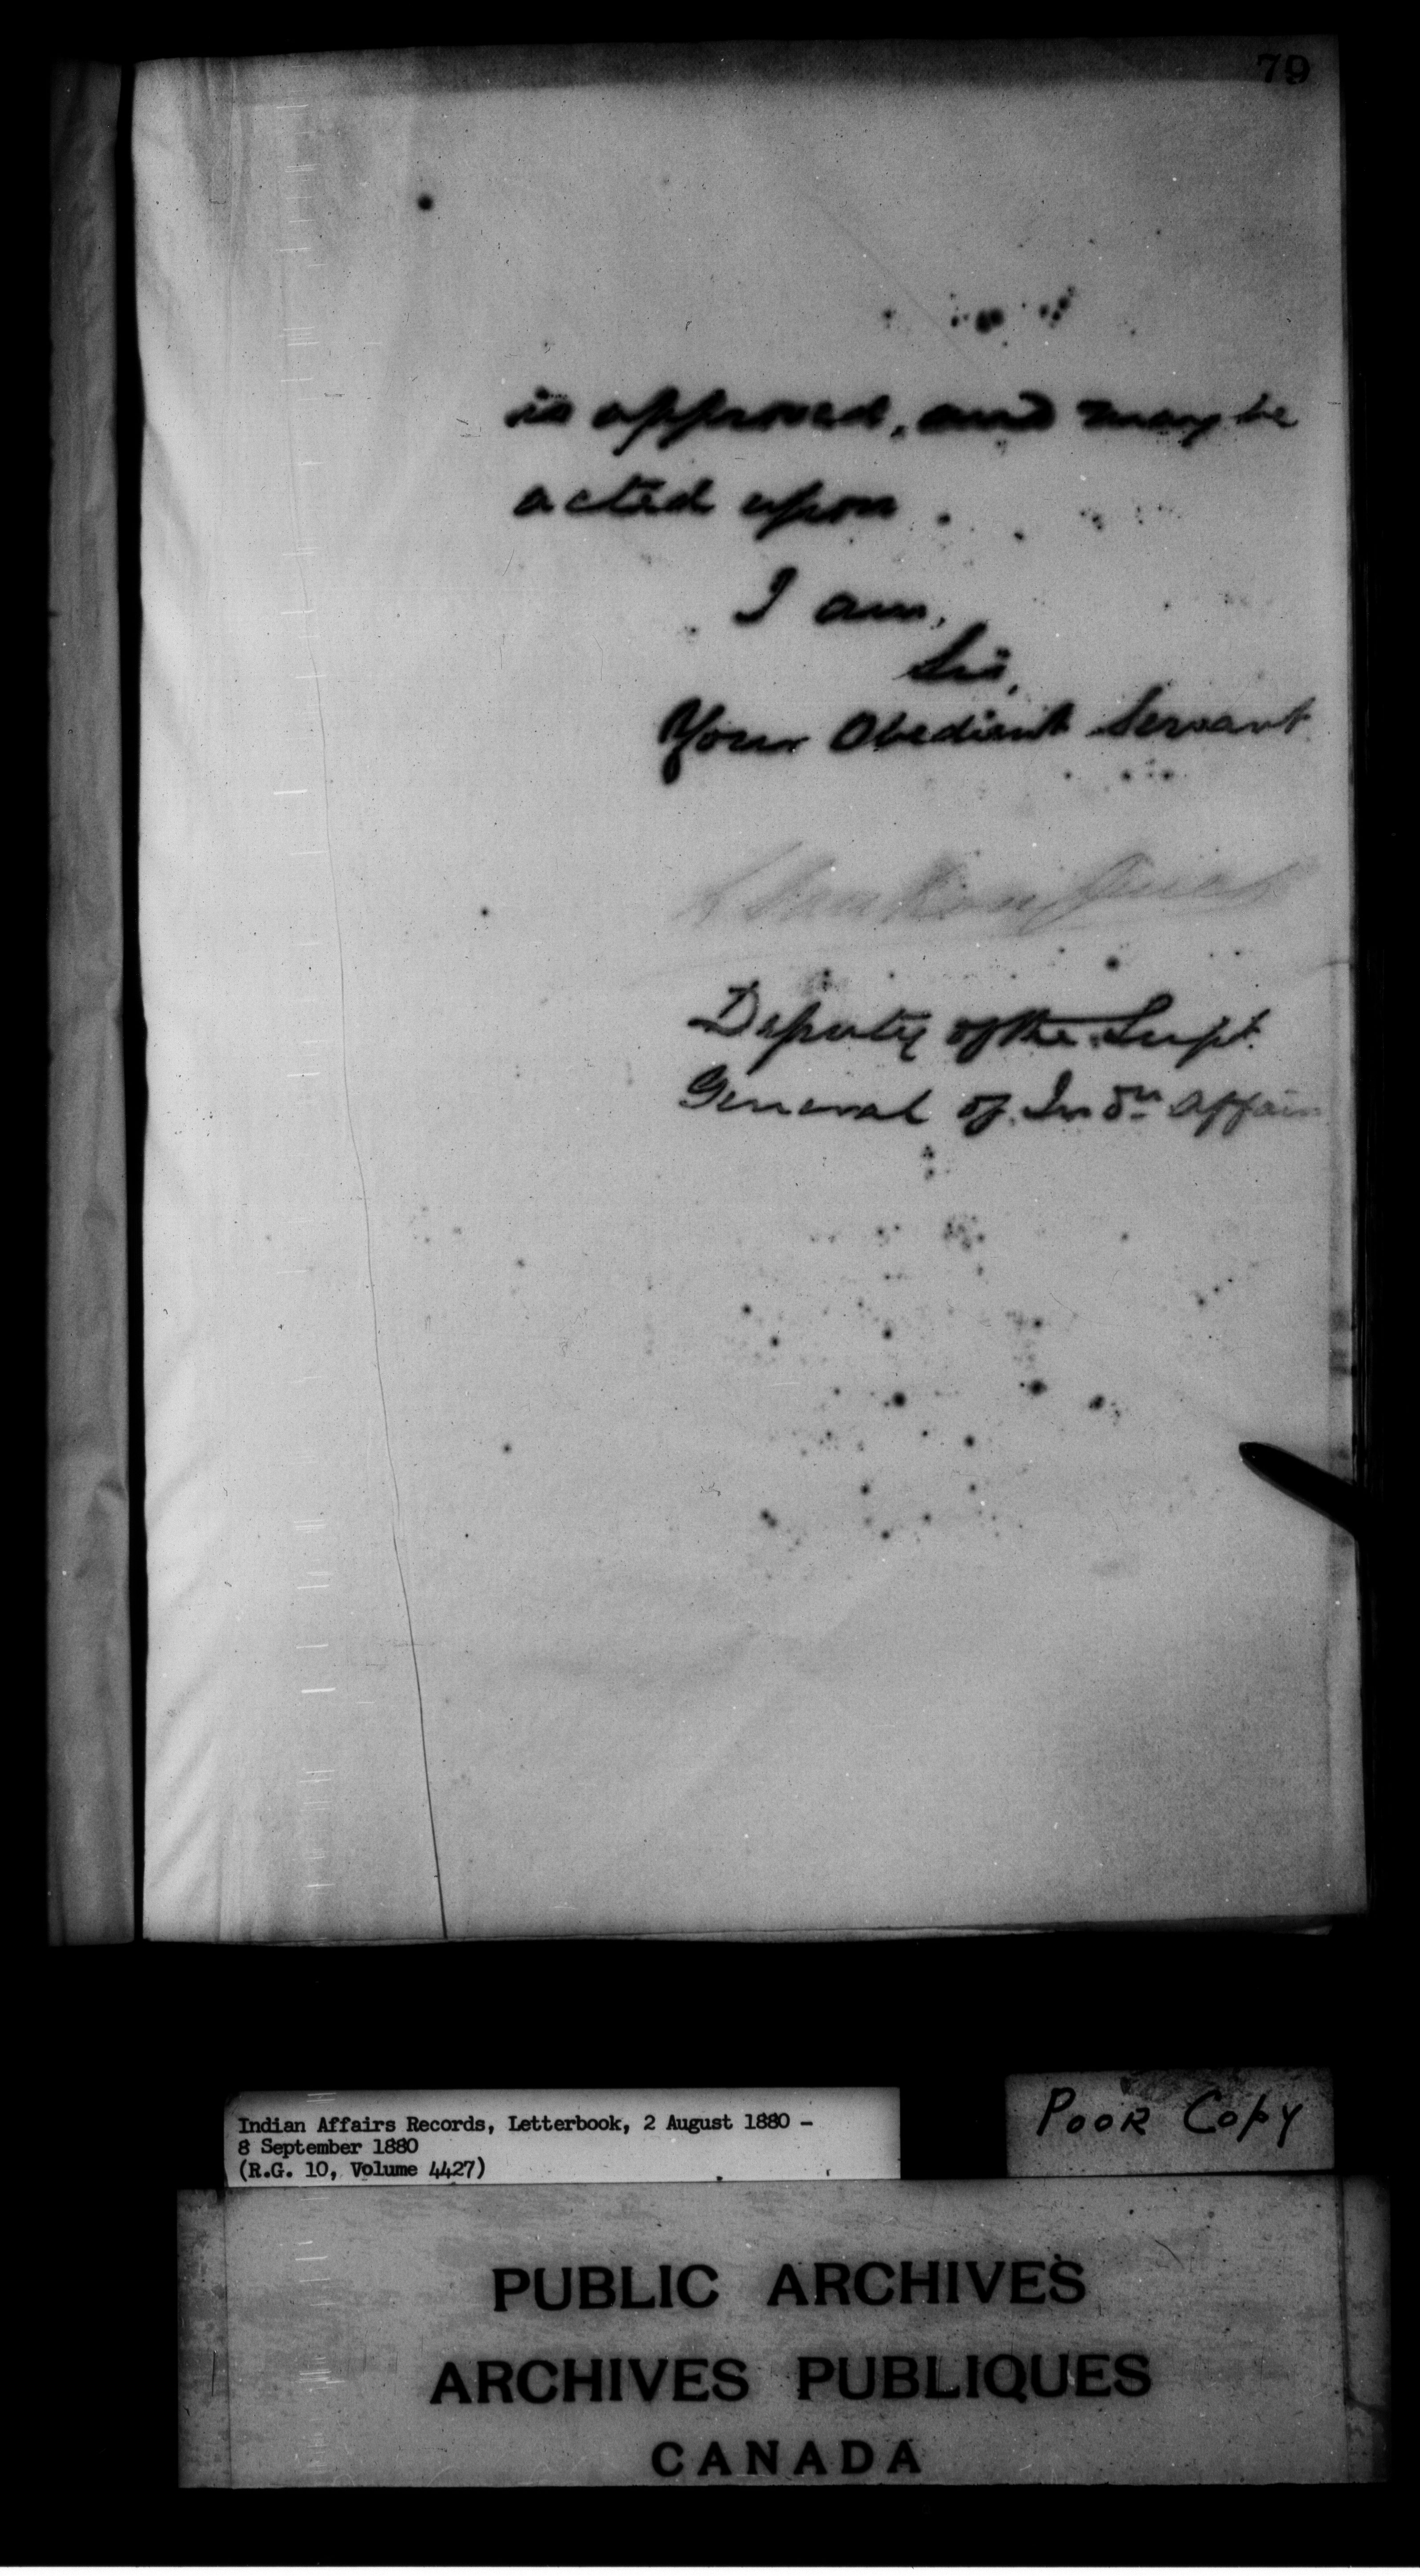 79
is approved, and may be
acted upon.
I am,
Sir,
Your Obedient Servant
L Vankoughnet
Deputy of the Supt.
General of Indn Affairs
Indian Affairs Records, Letterbook, 2 August 1880 –
8 September 1880
(R.G. 10, Volume 4427)
POOR COPY
PUBLIC ARCHIVES
ARCHIVES PUBLIQUES
CANADA